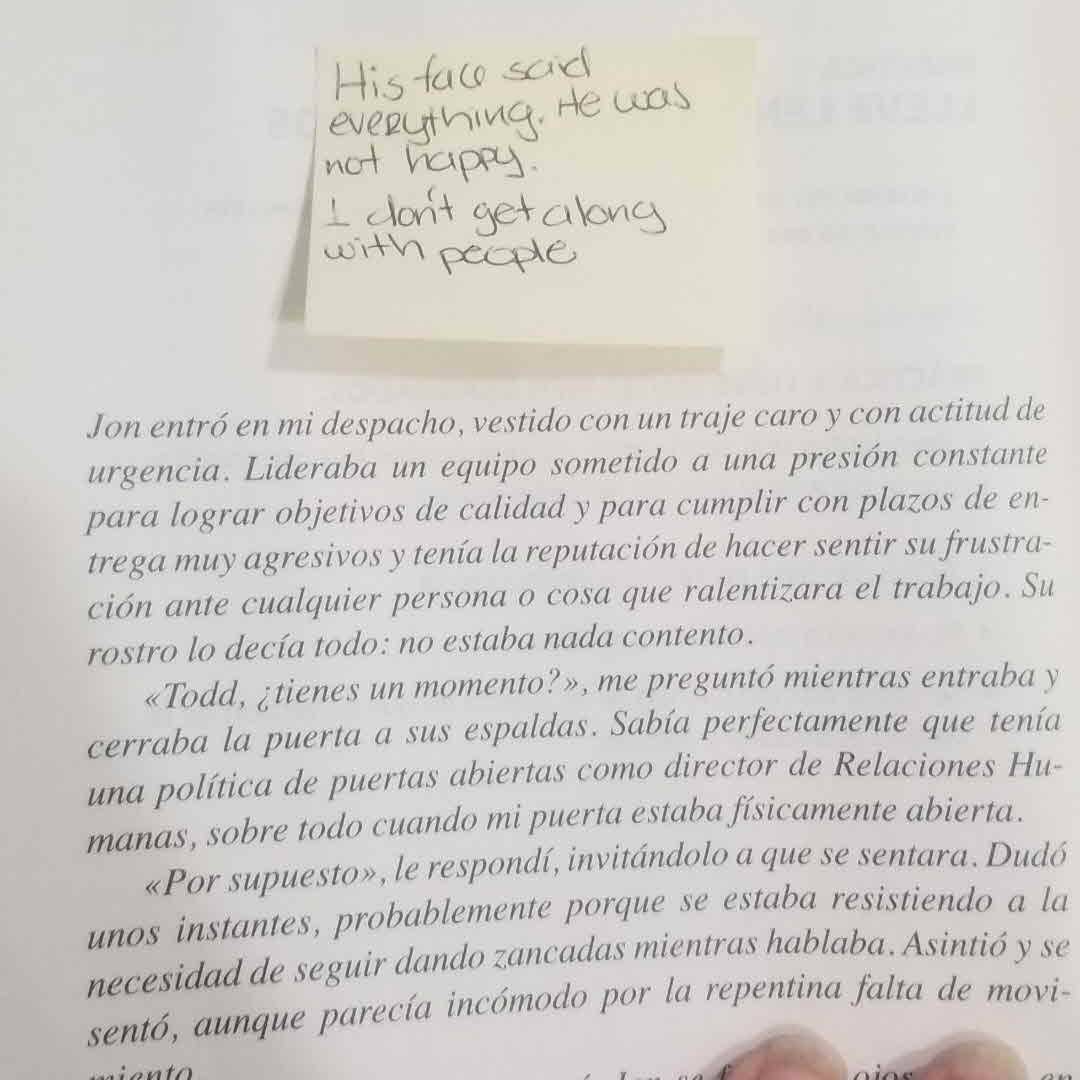 His face said
everything. He was
not happy.
I don't get along
with people
Jon entró en mi despacho, vestido con un traje caro y con actitud de
urgencia. Lideraba un equipo sometido a una presión constante
para lograr objetivos de calidad y para cumplir con plazos de en-
trega muy agresivos y tenía la reputación de hacer sentir su frustra-
ción ante cualquier persona o cosa que ralentizara el trabajo. Su
rostro lo decía todo: no estaba nada contento.
«Todd, ¿tienes un momento?», me preguntó mientras entraba y
cerraba la puerta a sus espaldas. Sabía perfectamente que tenía
una política de puertas abiertas como director de Relaciones Hu-
manas, sobre todo cuando mi puerta estaba físicamente abierta.
«Por supuesto», le respondí, invitándolo a que se sentara. Dudó
unos instantes, probablemente porque se estaba resistiendo a la
necesidad de seguir dando zancadas mientras hablaba. Asintió y se
sentó, aunque parecía incómodo por la repentina falta de movi-
miento